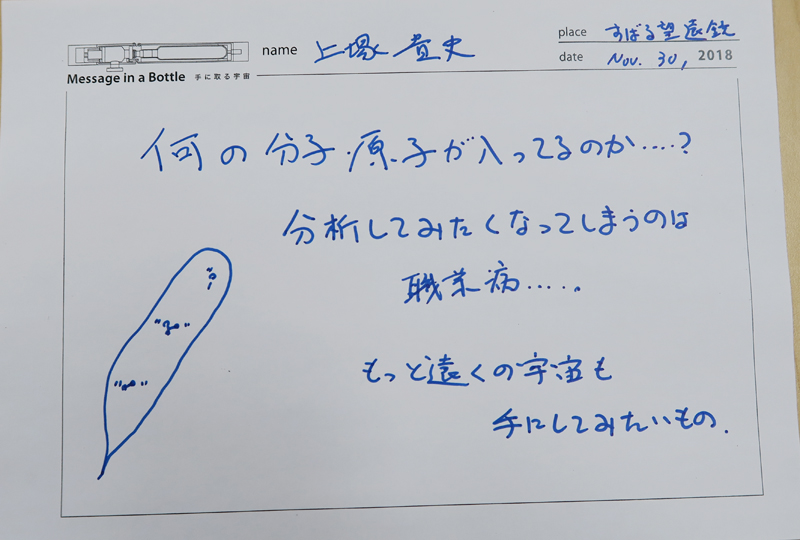 Message in a Bottle 手に取る宇宙
name 上塚貴史
place すばる望遠鏡
date Nov. 30, 2018
何の分子・原子が入ってるのか....?
分析してみたくなってしまうのは
職業病.....
もっと遠くの宇宙も
手にしてみたいもの.